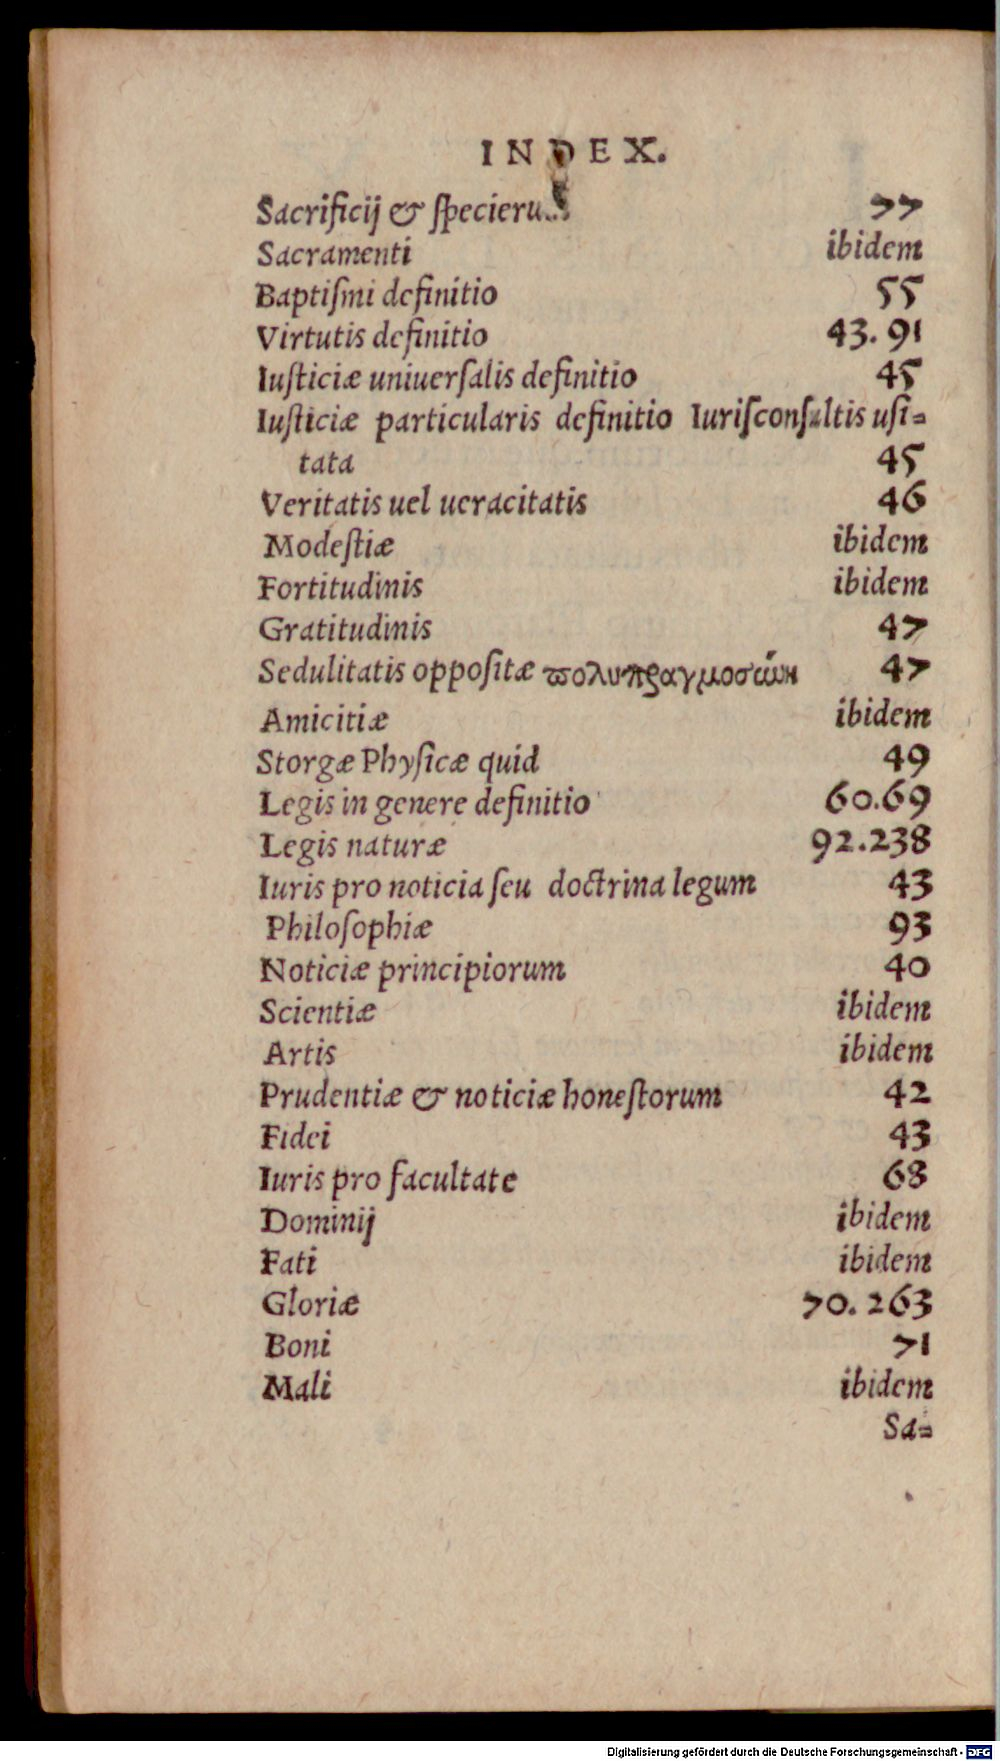 INDEX.
Sacrificij & ſpecierum 77
Sacramenti ibidem
Baptiſmi definitio 55
Virtutis definitio 43. 91
Iuſticiæ uniuerſalis definitio 45
Iuſticiæ particularis definitio Iuriſconſultis uſi=
tata 45
Veritatis uel ueracitatis 46
Modeſtiæ ibidem
Fortitudinis ibidem
Gratitudinis 47
Sedulitatis oppoſitæ πολυπραγμοσύνη 47
Amicitiæ ibidem
Storgæ Phyſicæ quid 49
Legis in genere definitio 60.69
Legis naturæ 92.238
Iuris pro noticia ſeu doctrina legum 43
Philoſophiæ 93
Noticiæ principiorum 40
Scientiæ ibidem
Artis ibidem
Prudentiæ & noticiæ honeſtorum 42
Fidei 43
Iuris pro facultate 68
Dominij ibidem
Fati ibidem
Gloriæ 70. 263
Boni 71
Mali ibidem
Sa=
Digitalisierung gefördert durch die Deutsche Forschungsgemeinschaft - DFG